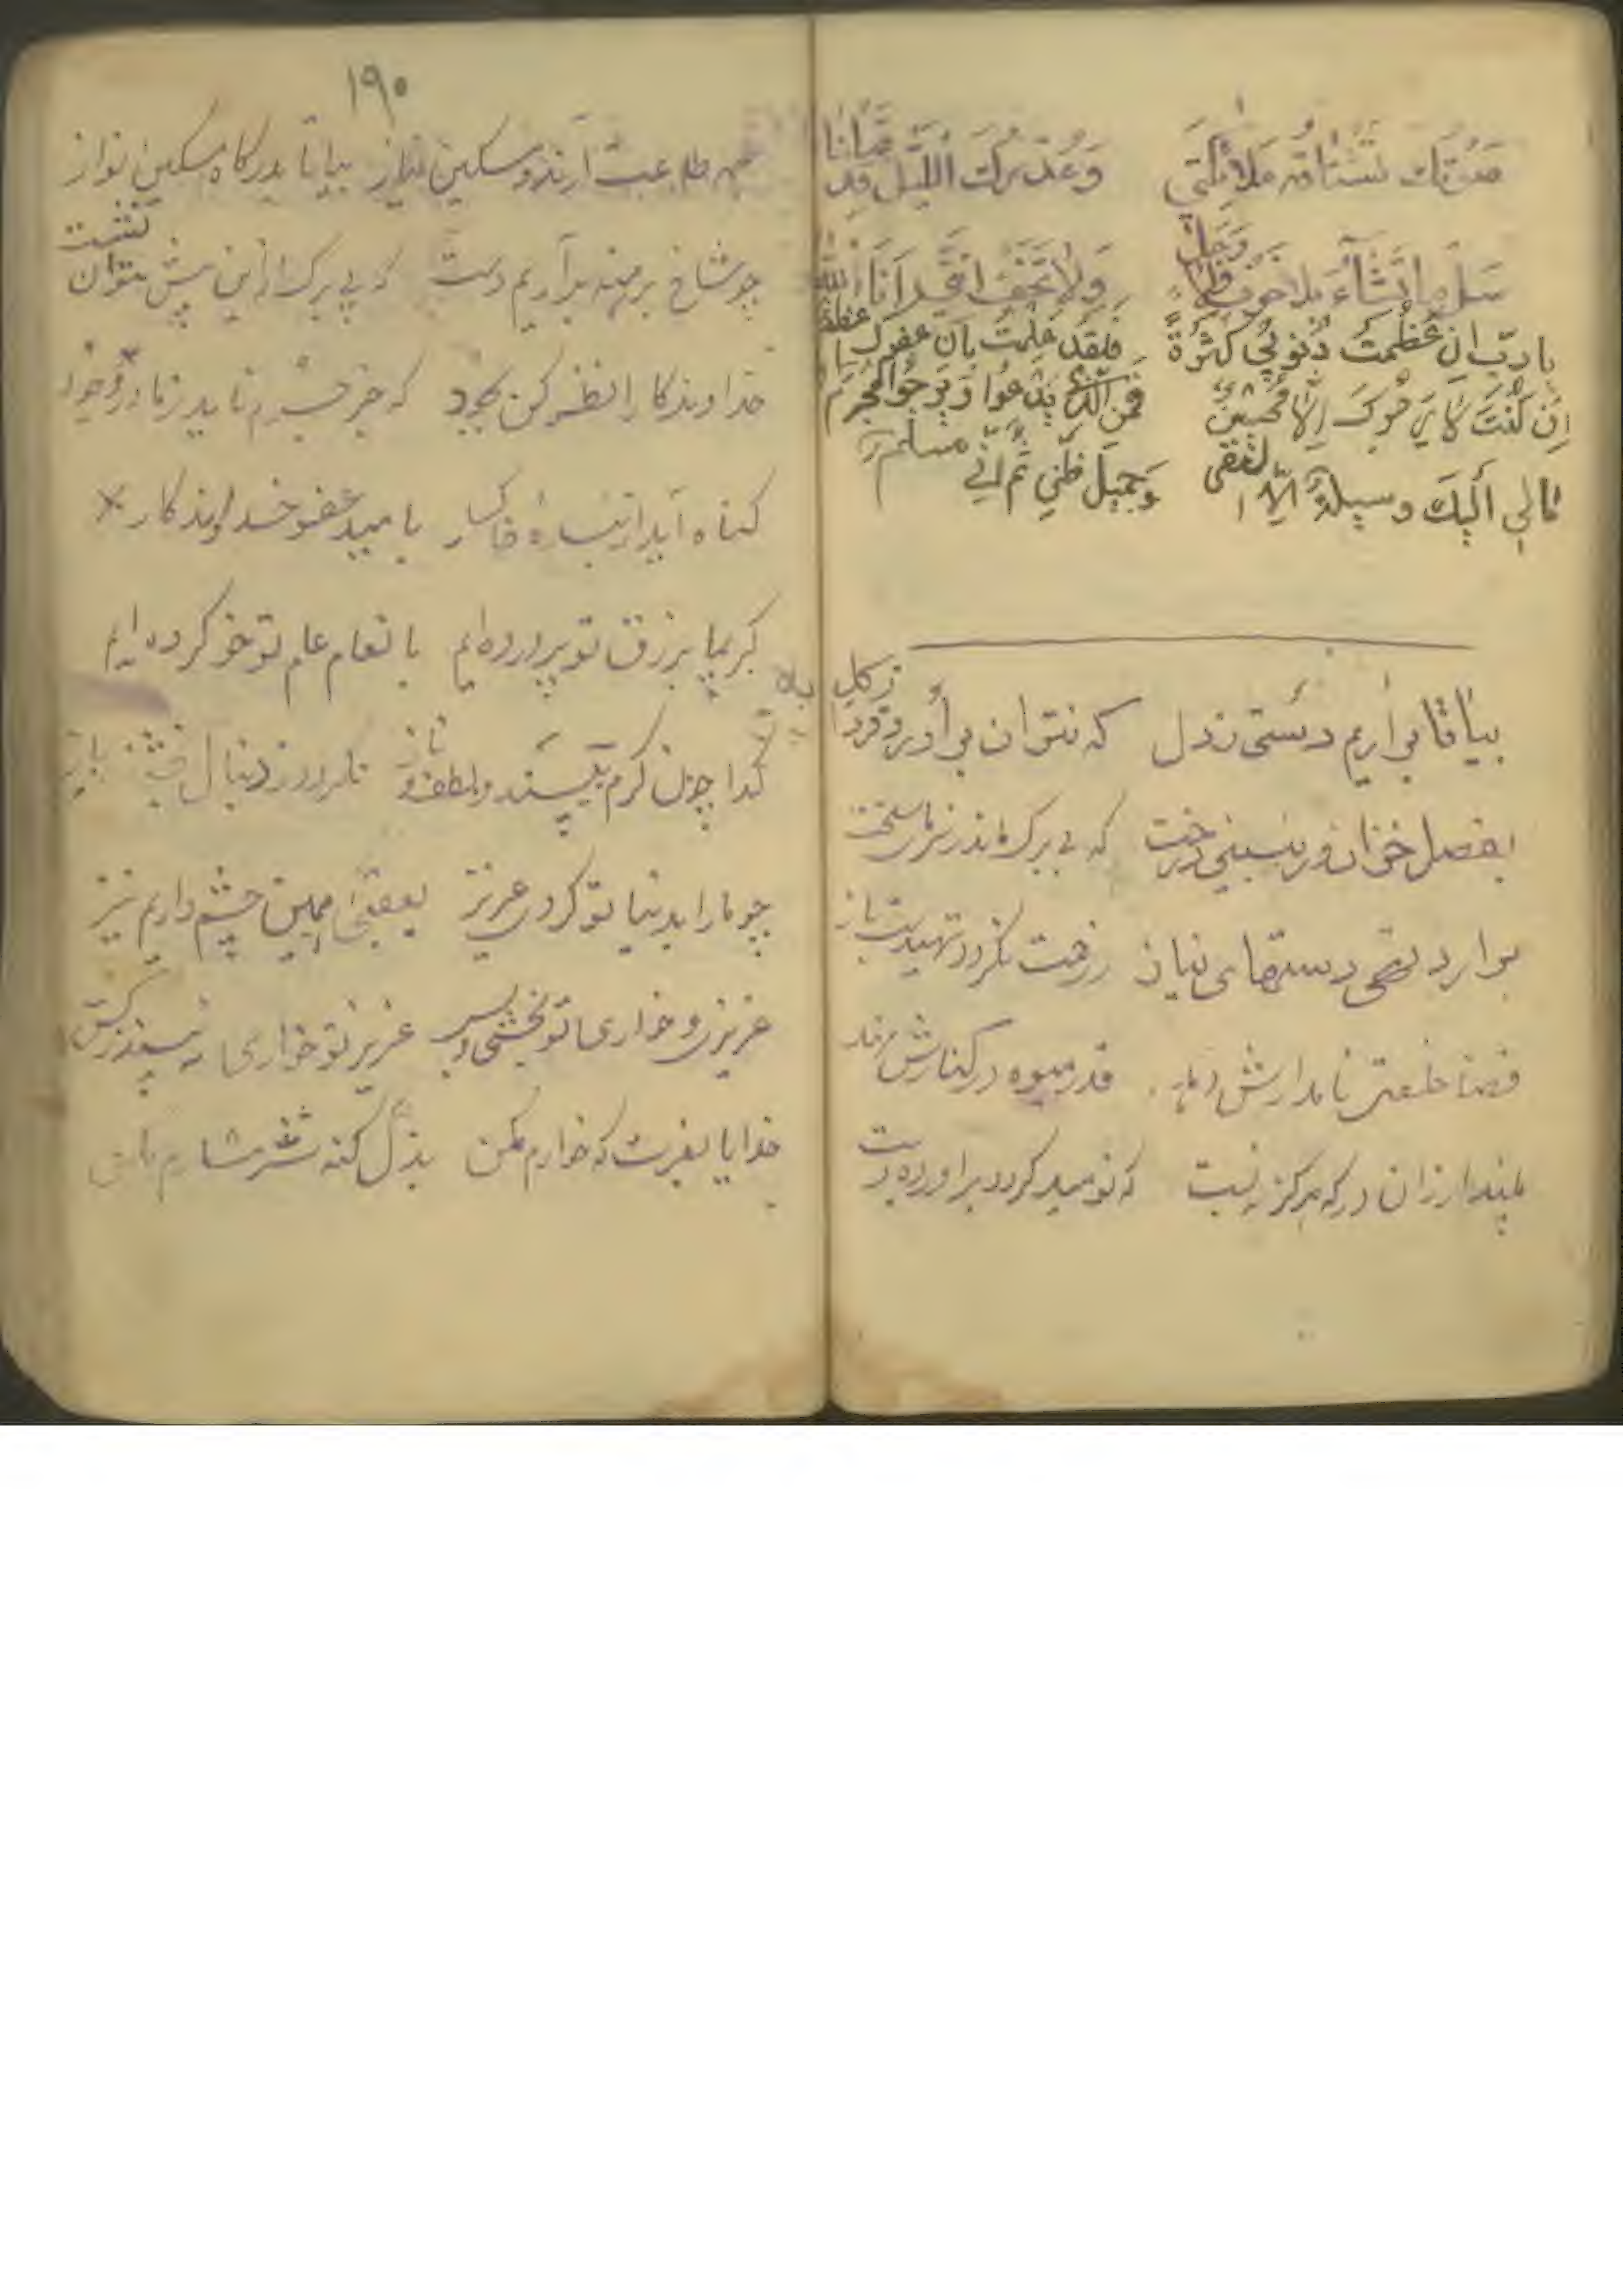 صوتك تشتاقه ملائكتي وعذرك الليل قد
سل ما تشاء بلا خوف ولا وجل ولا تخف انني انا الله
يا رب ان عظمت ذنوبي كثرة فلقد علمت بان عفوك اعظم
ان كنت لا يرجوك الا محسن فمن الذي يدعوا ويرجوا المجرم
مالي اليك وسيلة الا وجميل ظني ثم اني مسلم
بیا تا بر اریم دستی ز دل که نتوان بر آورد فردا ز گل
بفصل خزان در نبینی درخت که بی برگ ماند ز سرمای سخت
بر ارد تهی دستهای نیاز ز رحمت نگردد تهیدست باز
قضا خلعتی نامدارش دهد قدر میوه در کنارش نهد
مپندار از ان در که هرگز نبست که نومید گردد بر اورده دست
۱۹۰
همه طاعت آرند و مسکین نیاز بیا تا بدرگاه مسکین نواز
چو شاخ برهنه بر آریم دست که بی برگ از این پیش نتوان نشست
خداوندگارا نظر کن بجود که جرم آید از بندگان در وجود
گناه آید از بنده خاکسار بامید عفو خداوندگار
کریما برزق تو پرورده‌ایم بانعام عام تو خو کرده‌ایم
گدا چون کرم بیند و لطف و ناز نگردد ز دنبال بخشنده باز
چو ما را بدنیا تو کردی عزیز بعقبی همین چشم داریم نیز
عزیزی و خواری تو بخشی و بس عزیز تو خواری نه بیند ز کس
خدایا بعزت که خوارم مکن بذل گنه شرمسارم مکن